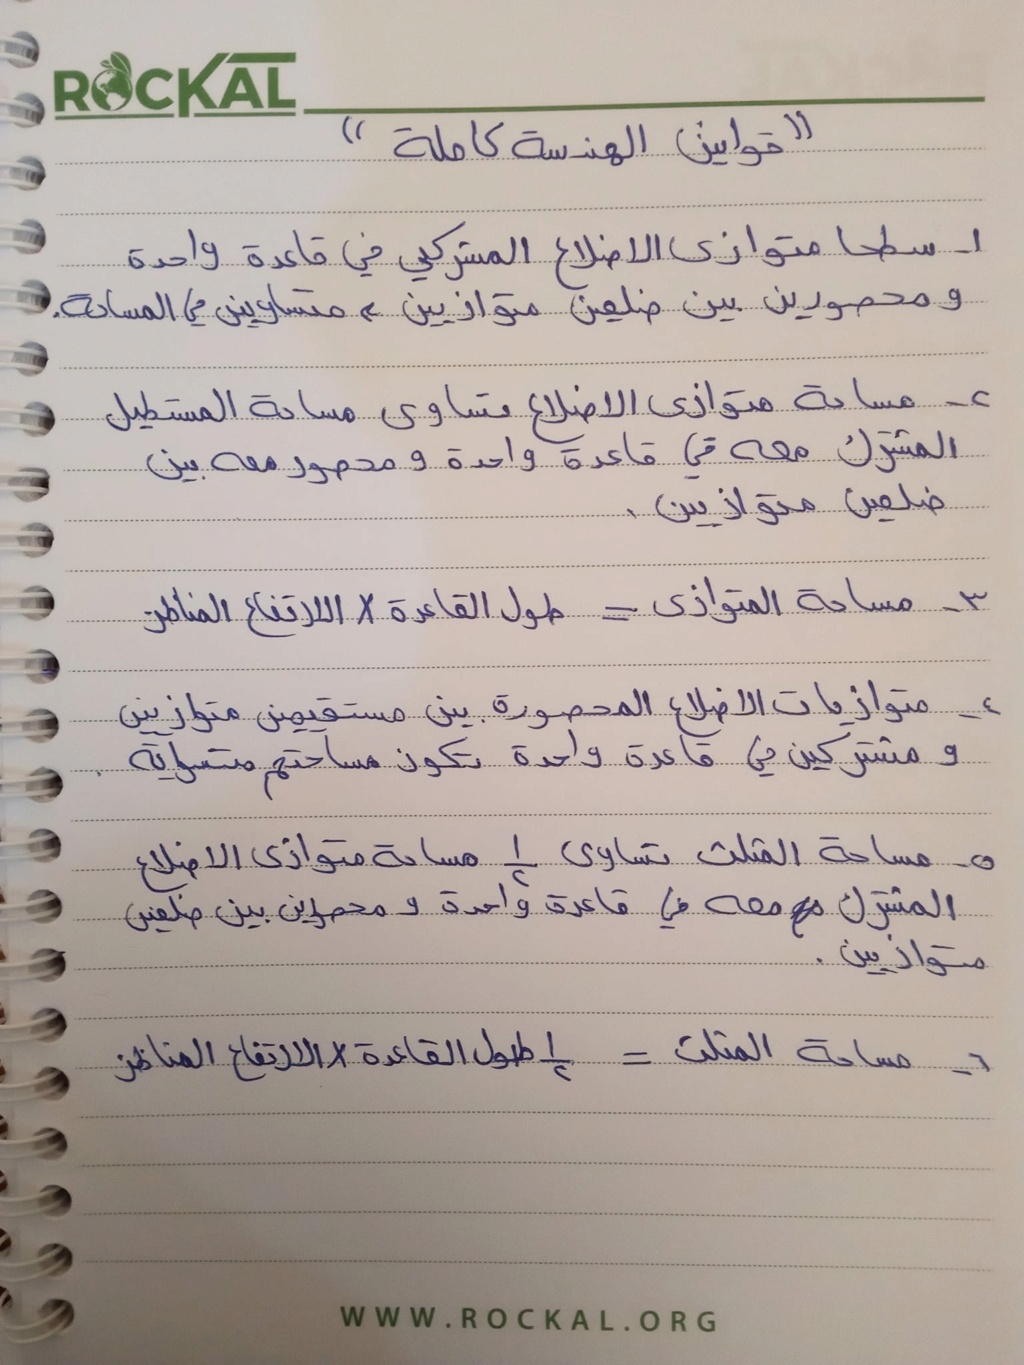 ROCKAL
"قوانين الهندسة كاملة"
١- سطحا متوازى الاضلاع المشتركي في قاعدة واحدة
و محصورين بين ضلعين متوازيين ، متساويين في المساحة.
٢- مساحة متوازى الاضلاع تساوى مساحة المستطيل
المشترك معه في قاعدة واحدة و محصور معه بين
ضلعين متوازيين .
٣- مساحة المتوازى = طول القاعدة X الارتفاع المناظر
٤- متوازيات الاضلاع المحصورة بين مستقيمين متوازيين
و مشتركين في قاعدة واحدة تكون مساحتهم متساوية .
٥- مساحة المثلث تساوى ١/٢ مساحة متوازى الاضلاع
المشترك معه في قاعدة واحدة و محصورين بين ضلعين
متوازيين .
٦- مساحة المثلث = ١/٢ طول القاعدة X الارتفاع المناظر
WWW.ROCKAL.ORG